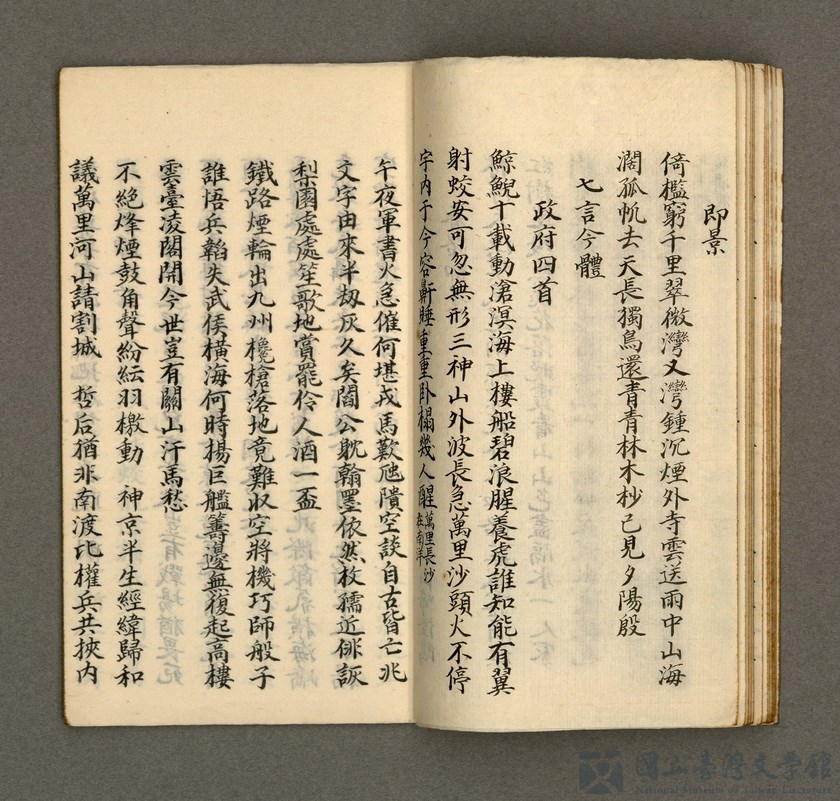 即景
倚檻窮千里翠微灣又灣鍾沉煙外寺雲送雨中山海
濶孤帆去天長獨鳥還青青林木杪已見夕陽殷
七言今體
政府四首
鯨鯢十載動滄溟海上樓船碧浪腥養虎誰知能有翼
射蛟安可忽無形三神山外波長急萬里沙頭火不停
宇內于今容鼾睡重重卧榻幾人醒萬里長沙
在南洋
午夜軍書火急催何堪戎馬歎虺隤空談自古皆亡兆
文字由來半刼灰久矣閻公躭翰墨依然枚孺近俳詼
梨園處處笙歌地賞罷伶人酒一盃
鐵路煙輪出九州欃槍落地竟難収空將機巧師般子
誰悟兵韜失武侯橫海何時揚巨艦籌邊無復起高樓
雲臺凌閣開今世豈有關山汗馬愁
不絕烽煙鼓角聲紛紜羽檄動 神京半生經緯歸和
議萬里河山請割城 哲后猶非南渡比權兵共挾內
國立臺灣文學館
National Museum of Taiwan Literature